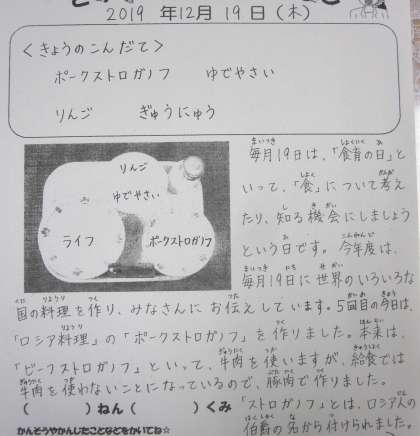 2019 年12月 19日(木)
<きょうのこんだて>
ポークストロガノフ ゆでやさい
りんご ぎゅうにゅう
りんご
ゆでやさい
ライフ
ポークストロガノフ
毎月19日は、「食育の日」と
いって、「食」について考え
たり、知る機会にしましょう
という日です。今年度は、
毎月19日に世界のいろいろな
国の料理を作り、みなさんにお伝えしています。5回目の今日は、
「ロシア料理」の「ポークストロガノフ」を作りました。本来は、
「ビーフストロガノフ」といって、牛肉を使いますが、給食では
牛肉を使わないことになっているので、豚肉で作りました。
( )ねん( )くみ
「ストロガノフ」とは、ロシア人の
かんそうやかんじたことなどをかいてね☆
伯爵の名から付けられました。